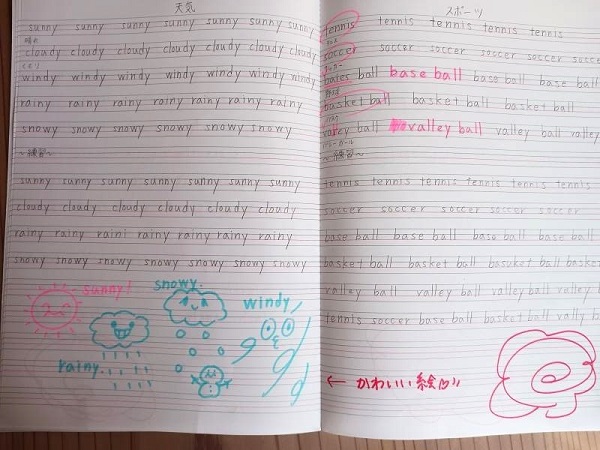 天気
sunny sunny sunny sunny sunny sunny sunny
晴れ
cloudy cloudy cloudy cloudy cloudy cloudy cloudy
くもり
windy windy windy windy windy windy windy
rainy rainy rainy rainy rainy rainy rainy
snowy snowy snowy snowy snowy snowy
〜練習〜
sunny sunny sunny sunny sunny sunny sunny
cloudy cloudy cloudy cloudy cloudy cloudy
rainy rainy raini rainy rainy rainy rainy
snowy snowy snowy snowy snowy snowy snowy
sunny!
rainy.
snowy.
windy
スポーツ
tennis tennis tennis tennis tennis
テニス
soccer soccer soccer soccer soccer
サッカー
bales ball base ball base ball base ball
野球
basket ball basket ball basket ball
valley ball valley ball valley ball valley
バレーボール
〜練習〜
tennis tennis tennis tennis tennis tennis
soccer soccer soccer soccer soccer
base ball base ball base ball base ball
basket ball basket ball basuket ball basket
valley ball valley ball valley ball valley
tennis soccer base ball basket ball vally
← かわいい絵